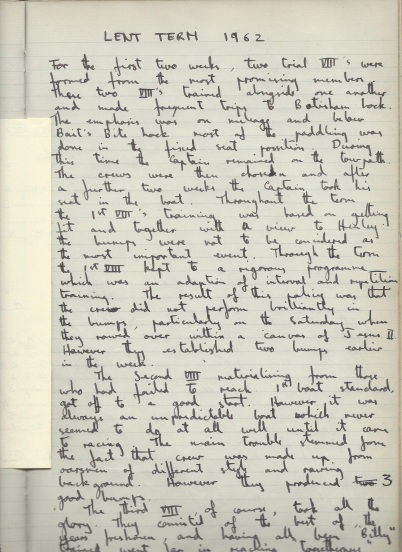 LENT TERM 1962
For the first two weeks, two trial VIII's were
formed from the most promising members
These two VIII's trained alongside one another
and made frequent trips to Botesham lock.
The emphasis was on mileage and below
Bait's Bite lock most of the paddling was
done in the fixed seat position During
this time the Captain remained on the towpath.
The crews were then chosen and after
a further two weeks the Captain took his
seat in the boat. Throughout the term
the 1st VIII's training was based on getting
fit and together with a view to Henley.
the bumps were not to be considered as
the most important event. Through the term
the 1st VIII kept to a rigorous programme
which was an adaption of interval and repetition
training. The result of this policy was that
the crew did not perform brilliantly in
the bumps, particularly on the Saturday when
they rowed over within a canvas of Jesus II
However they established two bumps earlier
in the week.
The Second VIII materialising from those
who had failed to reach 1st boat standard,
got off to a good start. However it was
always an unpredictable boat which never
seemed to do at all well until it came
to racing. The main trouble stemmed from
the fact that crew was made up from
oarsmen of different style and rowing
background. However they produced 3
good bumps.
The third VIII, of course, took all the
glory. They consisted of the best of the
years freshmen, and having all been "Billy"
trained went far in reaching